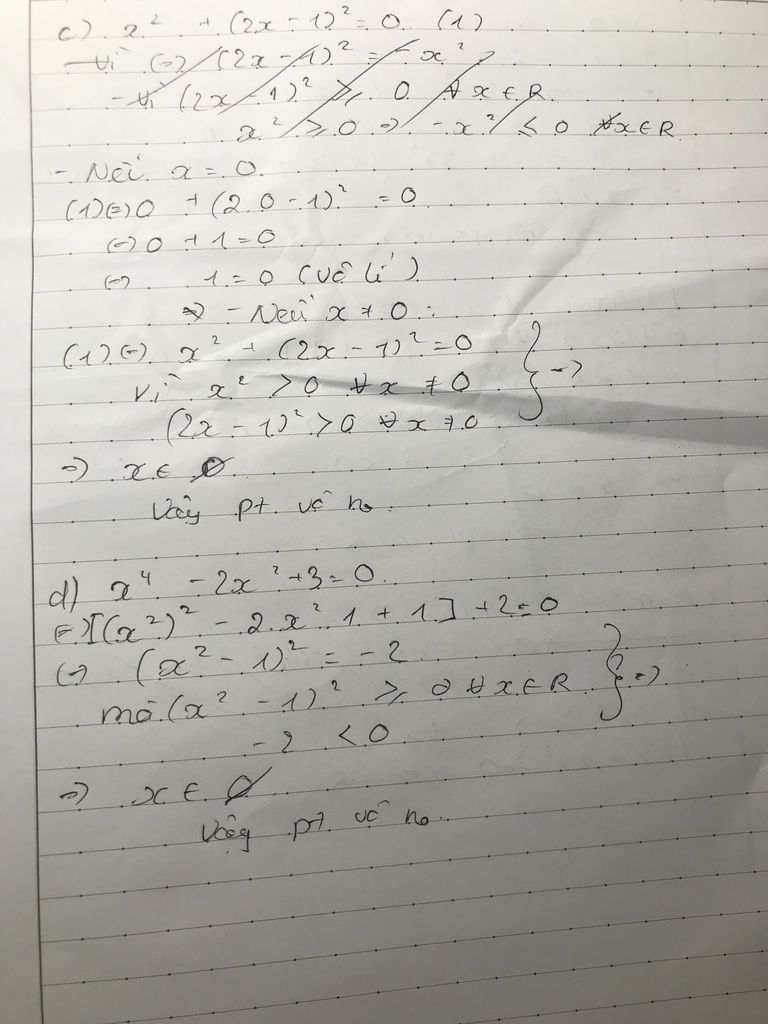 c) x² + (2x - 1)² = 0 (1)
- Vì (=) (2x - 1)² = - x²
- Vì (2x - 1)² ≥ 0 ∀ x ∈ R
x² ≥ 0 => - x² ≤ 0 ∀x ∈ R
- Nếu x = 0.
(1) (=) 0 + (2.0 - 1)² = 0
(=) 0 + 1 = 0
(=) 1 = 0 (vô lí)
=> - Nếu x ≠ 0 :
(1) (=) x² + (2x - 1)² = 0
Vì x² > 0 ∀ x ≠ 0
(2x - 1)² > 0 ∀ x ≠ 0 } =>
=> x ∈ ∅
Vậy pt vô no
d) x⁴ - 2x² + 3 = 0
(=) [(x²)² - 2.x².1 + 1] + 2 = 0
(=) (x² - 1)² = -2
mà (x² - 1)² ≥ 0 ∀ x ∈ R } =>
- 2 < 0
=> x ∈ ∅
Vậy pt vô no